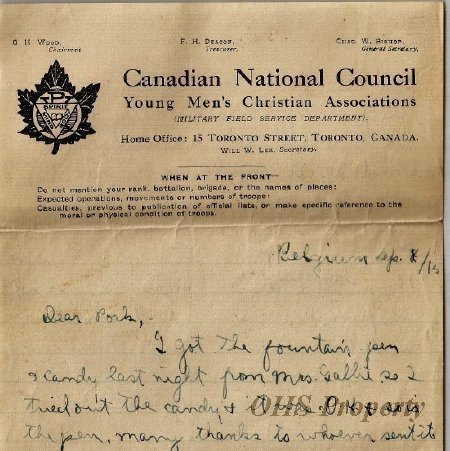 G H Wood,
Chairman.
F. H. Deacon,
Treasurer.
Chas. W. Bishop,
General Secretary.
SPIRIT
Canadian National Council
Young Men's Christian Associations
(MILITARY FIELD SERVICE DEPARTMENT).
Home Office: 15 Toronto Street, Toronto, Canada.
Will W. Lee, Secretary.
WHEN AT THE FRONT—
Do not mention your rank, battalion, brigade, or the names of places;
Expected operations, movements or numbers of troops;
Casualties, previous to publication of official lists, or make specific reference to the
moral or physical condition of troops.
Belgium
Dear Pork,
I got the fountain pen
& candy last night from Mrs. Gallie so I
tried out the candy &
the pen, many thanks to whoever sent it
OHS Property